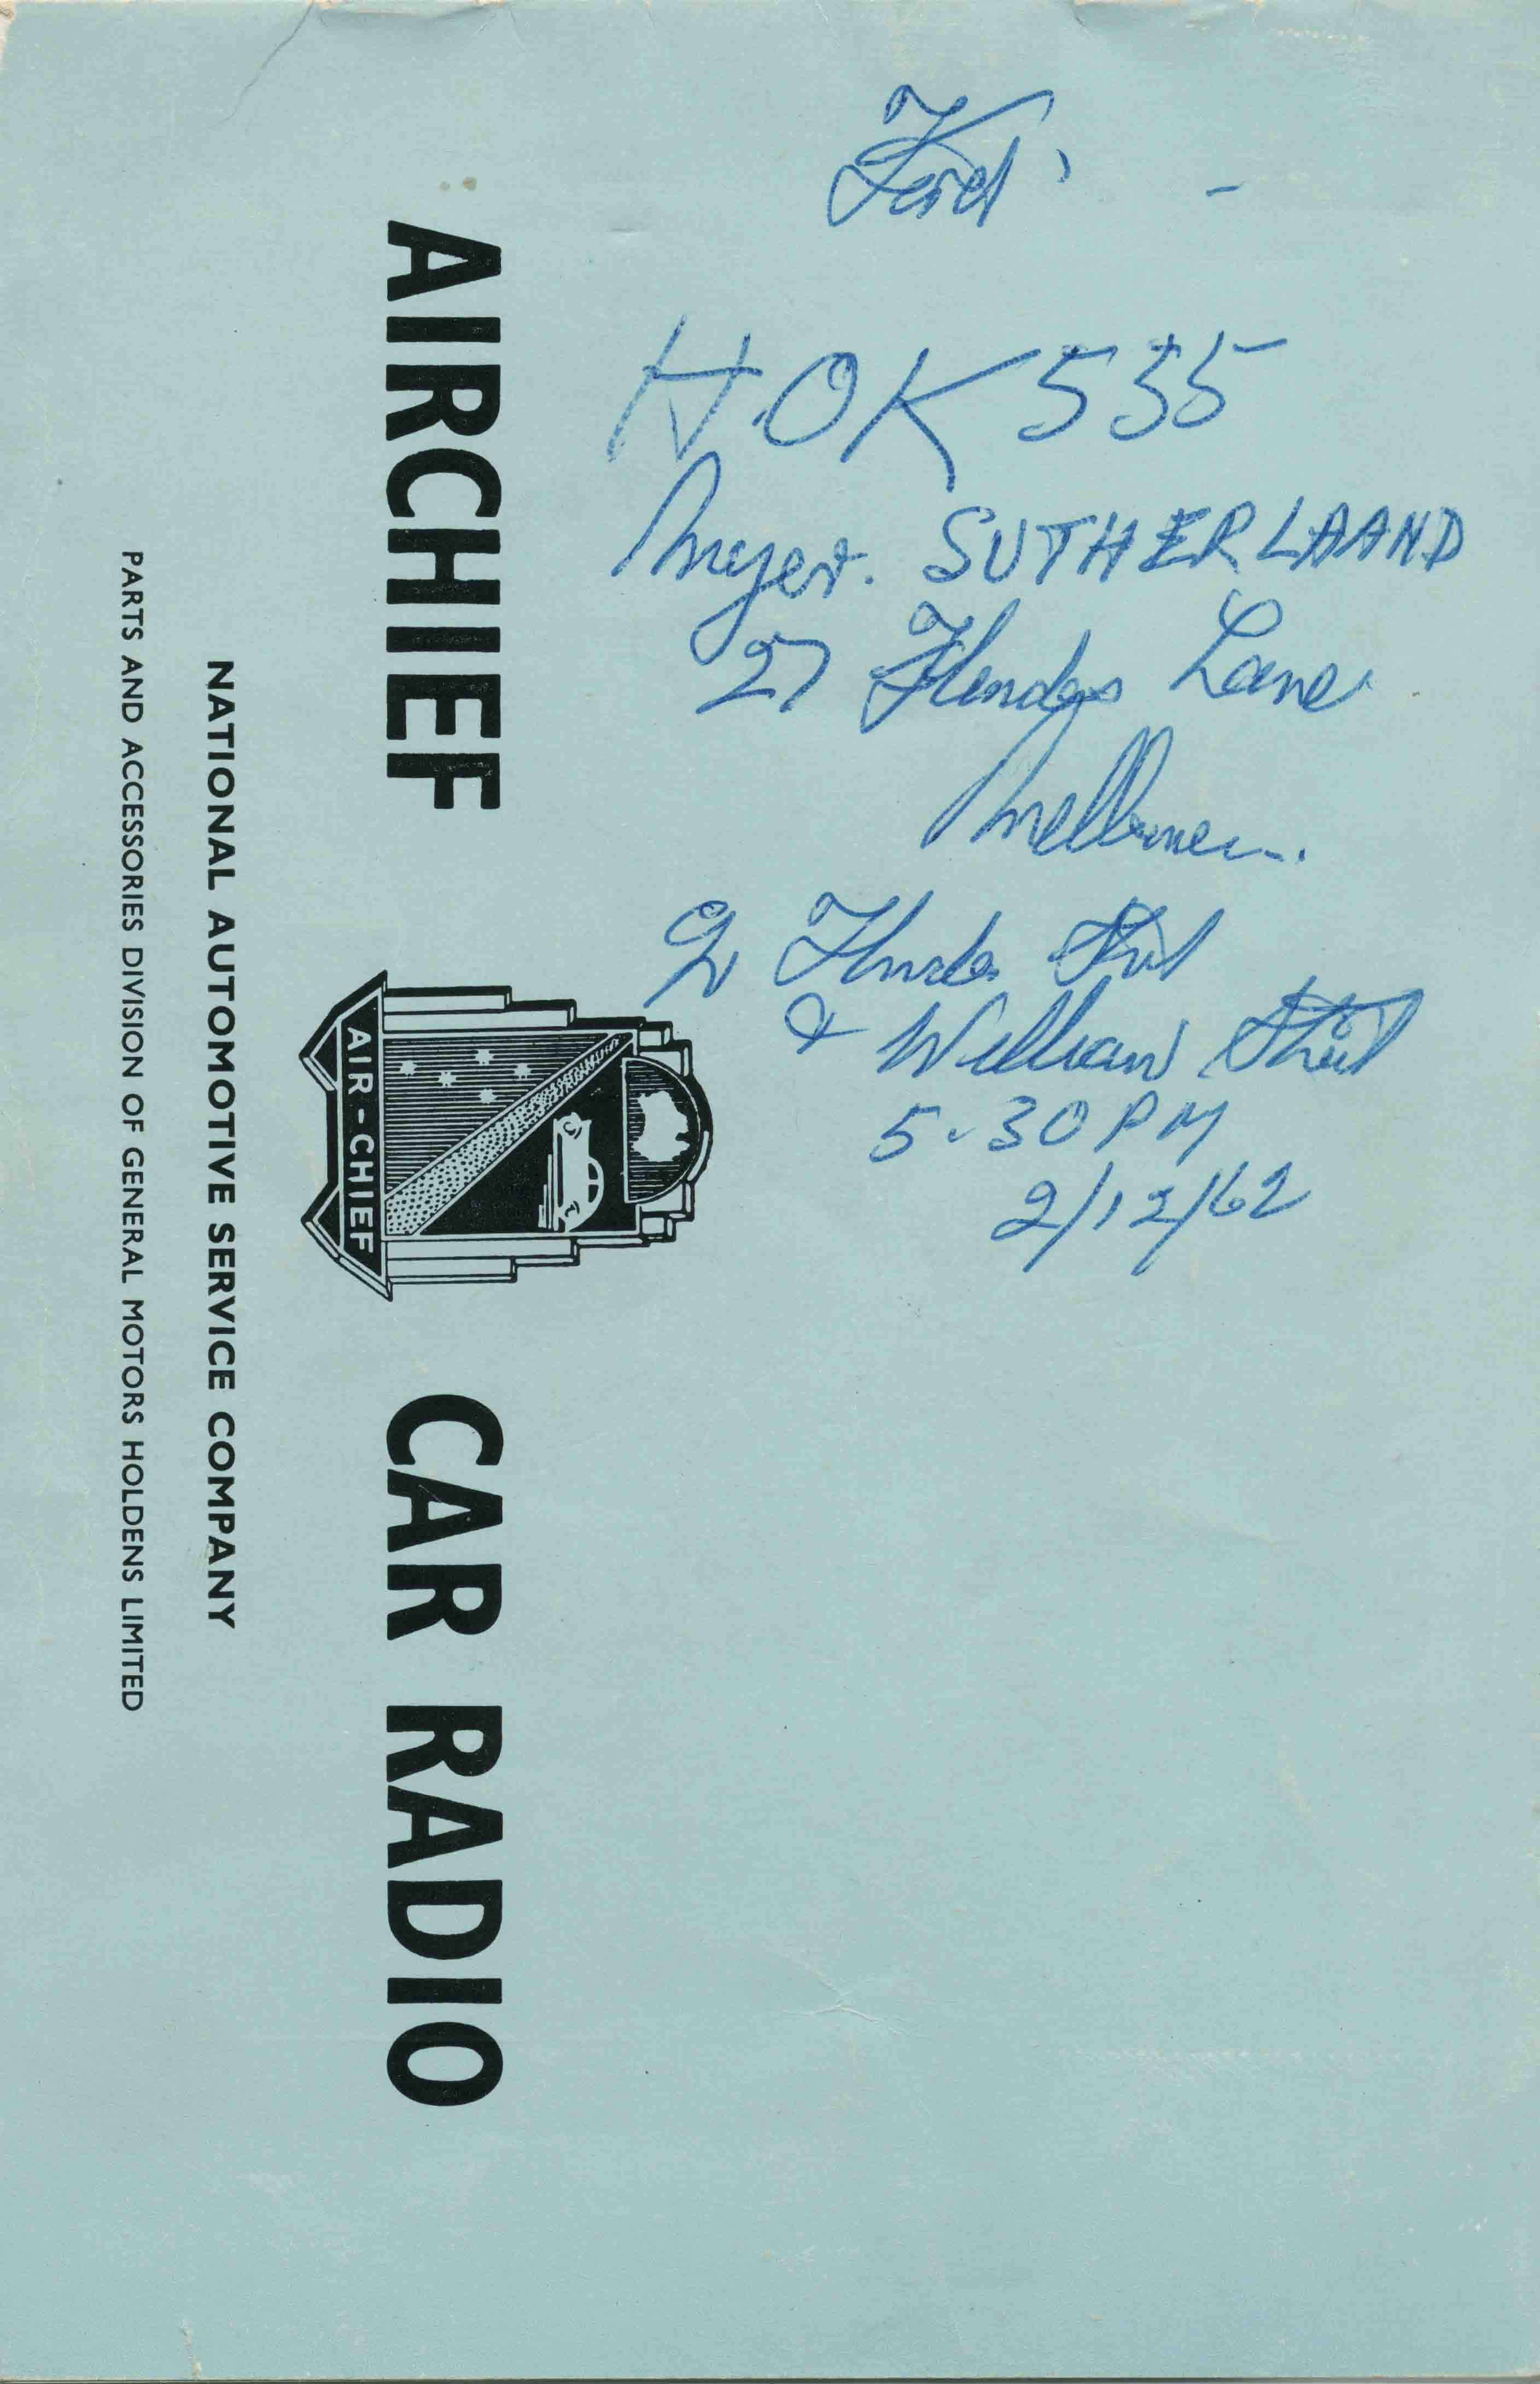 Ford
HOK 535
Myer. SUTHERLAAND
27 Flinders Lane
Melbourne.
Flinders Street
& William Street
5-30 PM
2/12/62
AIRCHIEF CAR RADIO
AIR-CHIEF
NATIONAL AUTOMOTIVE SERVICE COMPANY
PARTS AND ACCESSORIES DIVISION OF GENERAL MOTORS HOLDENS LIMITED